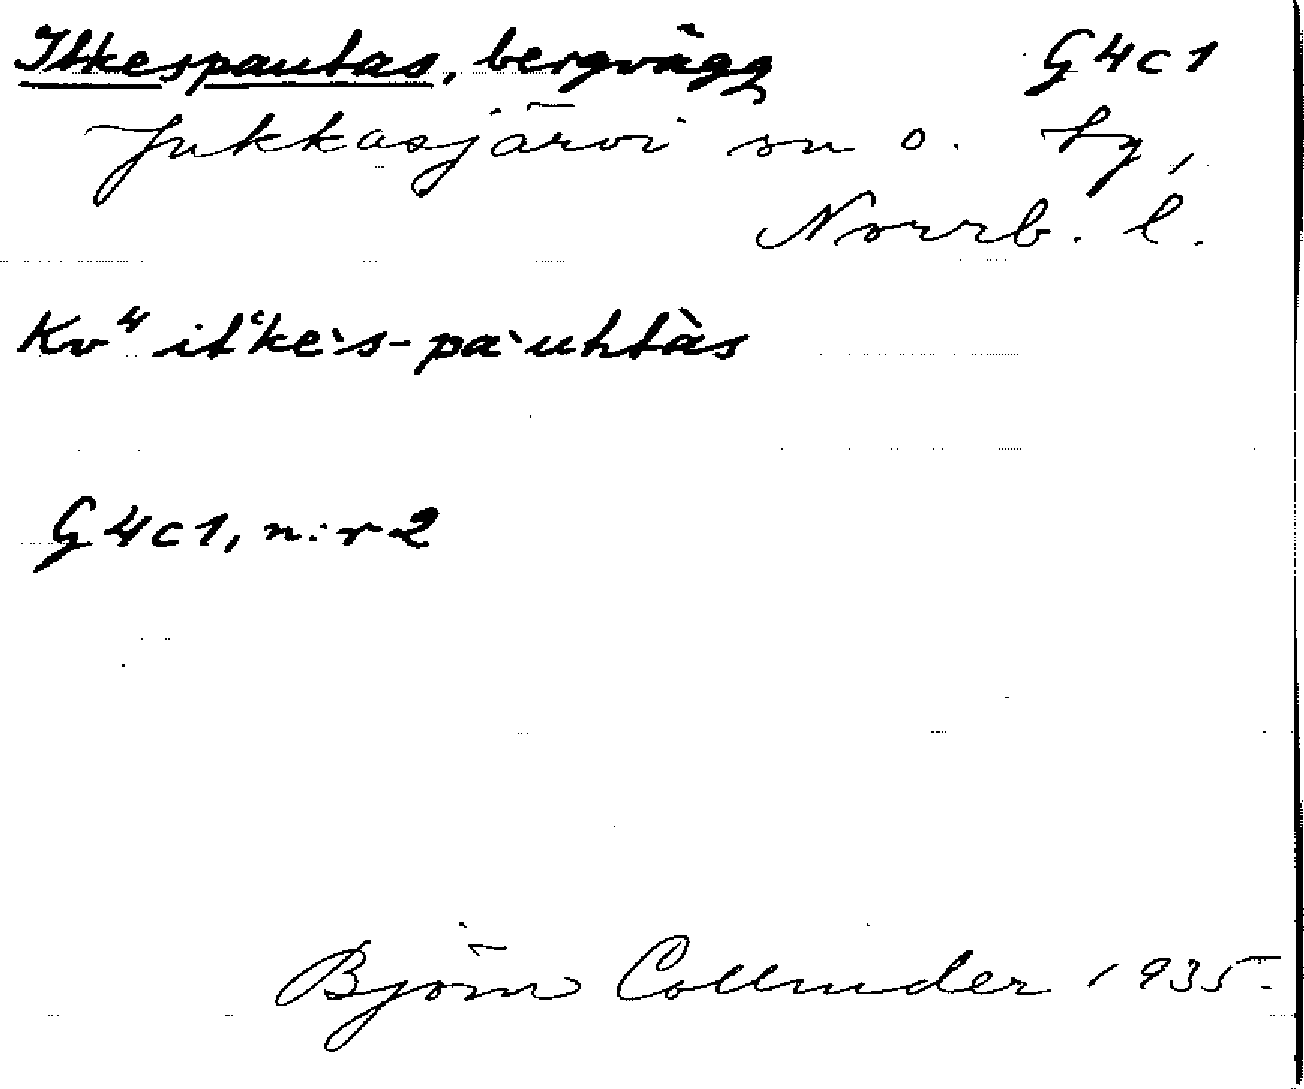 Itkespautas, bergvägg G4c1
Jukkasjärvi sn o. tg,
Norrb. l.
Kv⁴ it‘ke·s-pa·uhtàs
G4c1, n:r 2
Björn Collinder 1935.